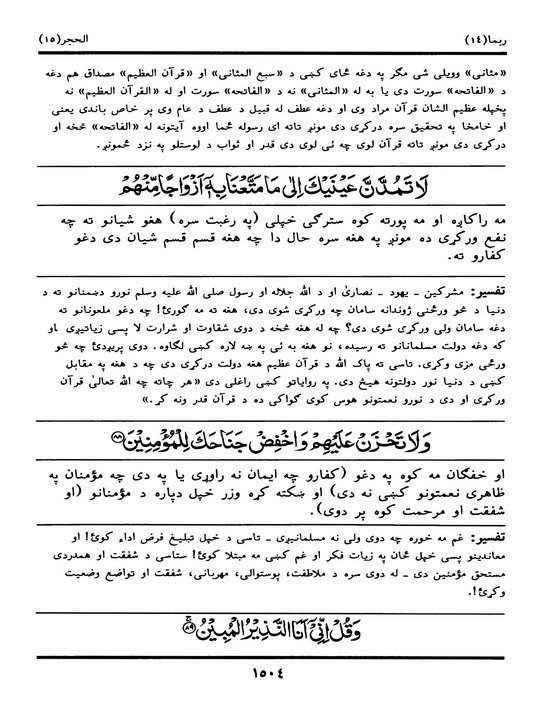 ربما(١٤)
الحجر(١٥)
«مثانی» وویلی شی مگر په دغه ځای کښی د «سبع المثانی» او «قرآن العظیم» مصداق هم دغه
د «الفاتحه» سورت دی یا به له «المثانی» نه د «الفاتحه» سورت او له «القرآن العظیم» نه
پخپله عظیم الشان قرآن مراد وی او دغه عطف له قبیل د عطف د عام وی پر خاص باندی یعنی
او خامخا په تحقیق سره درکړی دی مونږ تاته ای رسوله ځما اووه آیتونه له «الفاتحه» څخه او
درکړی دی مونږ تاته قرآن لوی چه ئی لوی دی قدر او ثواب د لوستلو په نزد ځمونږ.
لَا تَمُدَّنَّ عَيْنَيْكَ إِلَىٰ مَا مَتَّعْنَا بِهِ أَزْوَاجًا مِّنْهُمْ
مه راکاږه او مه پورته کوه سترګی خپلی (په رغبت سره) هغو شیانو ته چه
نفع ورکړی ده مونږ په هغه سره حال دا چه هغه قسم قسم شیان دی دغو
کفارو ته.
تفسیر: مشرکین ـ یهود ـ نصاریٰ او د الله جلاله او رسول صلی الله علیه وسلم نورو دښمنانو ته د
دنیا د څو ورځنی ژوندانه سامان چه ورکړی شوی دی، هغه ته مه ګورئ! چه دغو ملعونانو ته
دغه سامان ولی ورکړی شوی دی؟ چه له هغه څخه د دوی شقاوت او شرارت لا پسی زیاتیږی ـاو
که دغه دولت مسلمانانو ته رسیده، نو هغه به ئی په ښه لاره کښی لګاوه. دوی پریږدئ چه څو
ورځی مزی وکړی. تاسی ته پاک الله د قرآن عظیم هغه دولت درکړی دی چه د هغه په مقابل
کښی د دنیا نور دولتونه هیڅ دی. په روایاتو کښی راغلی دی «هر چاته چه الله تعالیٰ قرآن
ورکړی او دی د نورو نعمتونو هوس کوی ګواکی ده د قرآن قدر ونه کړ.»
وَلَا تَحْزَنْ عَلَيْهِمْ وَاخْفِضْ جَنَاحَكَ لِلْمُؤْمِنِينَ ﴿٨٨﴾
او خفګان مه کوه په دغو (کفارو چه ایمان نه راوړی یا په دی چه مؤمنان په
ظاهری نعمتونو کښی نه دی) او ښکته کړه وزر خپل دپاره د مؤمنانو (او
شفقت او مرحمت کوه پر دوی).
تفسیر: غم مه خوره چه دوی ولی نه مسلمانیږی ـ تاسی د خپل تبلیغ فرض اداء کوئ! او
معاندینو پسی خپل ځان په زیات فکر او غم کښی مه مبتلا کوئ! ستاسی د شفقت او همدردی
مستحق مؤمنین دی ـ له دوی سره د ملاطفت، پوستوالی، مهربانی، شفقت او تواضع وضعیت
وکړئ!.
وَقُلْ إِنِّي أَنَا النَّذِيرُ الْمُبِينُ ﴿٨٩﴾
١٥٠٤